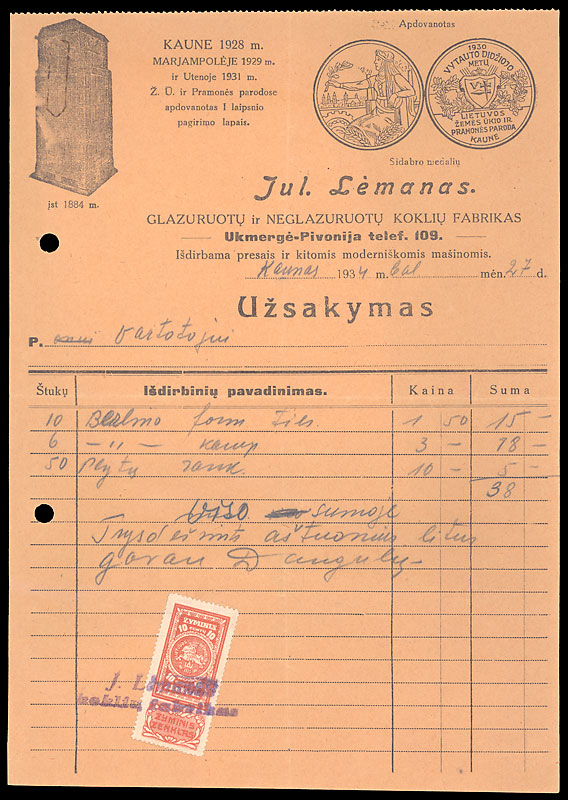 Apdovanotas
KAUNE 1928 m.
MARJAMPOLĖJE 1929 m.
ir Utenoje 1931 m.
Ž. Ū. ir Pramonės parodose
apdovanotas I laipsnio
pagirimo lapais.
1930
VYTAUTO DIDŽIOJO
METŲ
LIETUVOS
ŽEMĖS ŪKIO IR
PRAMONĖS PARODA
KAUNE
Sidabro medalių
įst 1884 m.
Jul. Lėmanas.
GLAZURUOTŲ ir NEGLAZURUOTŲ KOKLIŲ FABRIKAS
Ukmergė-Pivonija telef. 109.
Išdirbama presais ir kitomis moderniškomis mašinomis.
Kaunas 1934 m. mėn. 27 d.
Užsakymas
P. Vartotojui
Štukų Išdirbinių pavadinimas. Kaina Suma
10 form 1 50 15 —
6 — „ — kamp 3 — 18 —
50 Plytų rank. 10 — 5 —
38
Viso sumoje
Trysdešimts aštuonius litus
gavau
ŽYMINIS
10 10
ŽYMINIS
ŽENKLAS
J. Lėmanas
koklių fabrikas